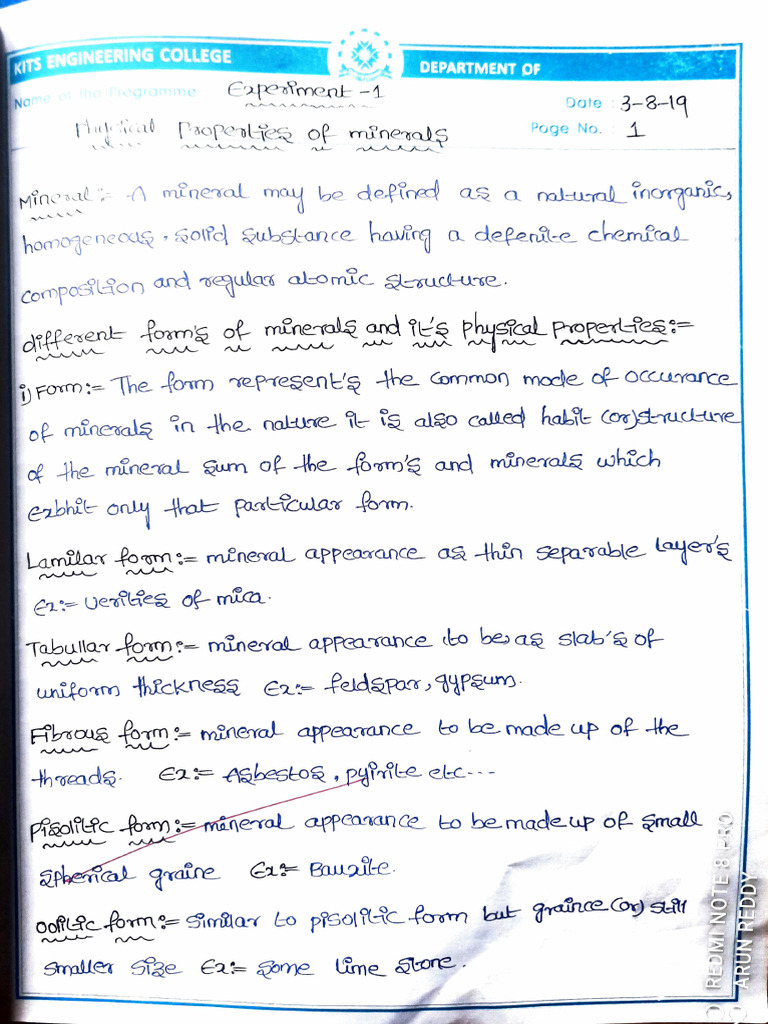 KITS ENGINEERING COLLEGE
DEPARTMENT OF
Name of the Programme Experiment -1
Date : 3-8-19
Physical Properties of minerals
Page No. : 1
Mineral:- A mineral may be defined as a natural inorganic,
homogeneous, solid substance having a defenite chemical
composition and regular atomic structure.
different form's of minerals and it's physical properties:-
i) Form:- The form represent's the common mode of occurance
of minerals in the nature it is also called habit (or) structure
of the mineral sum of the form's and minerals which
exbhit only that particular form.
Lamilar form:- mineral appearance as thin separable layer's
Ex:- verities of mica.
Tabullar form:- mineral appearance to be as slab's of
uniform thickness Ex:- feldspar, gypsum.
Fibrous form:- mineral appearance to be made up of the
threads. Ex:- Asbestos, pyirite etc---
Pisolitic form:- mineral appearance to be made up of small
spherical graine Ex:- Bauxite.
oolitic form:- similar to pisolitic form but graince (or) still
smaller size Ex:- some lime stone.
REDMI NOTE 8 PRO
ARUN REDDY